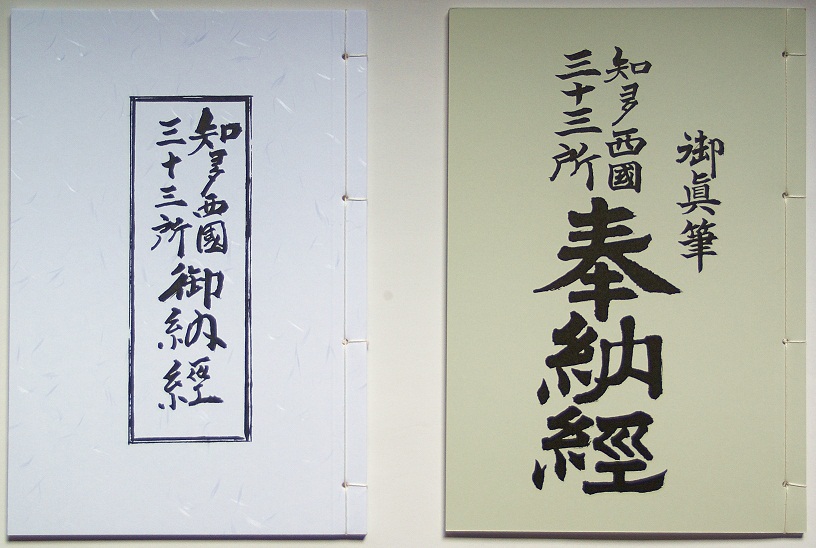 知多西國
三十三所
御納経
御眞筆
知多西國
三十三所
奉納經